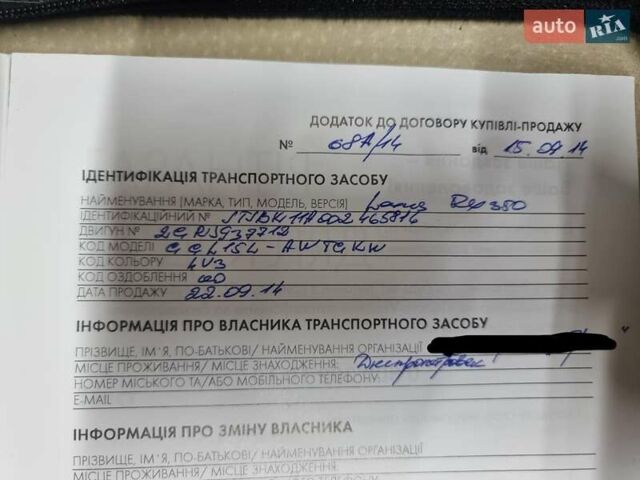 auto RIA.com
ДОДАТОК ДО ДОГОВОРУ КУПІВЛІ-ПРОДАЖУ
№ 68А/14 від 15.09.14
ІДЕНТИФІКАЦІЯ ТРАНСПОРТНОГО ЗАСОБУ
НАЙМЕНУВАННЯ (МАРКА, ТИП, МОДЕЛЬ, ВЕРСІЯ)
ІДЕНТИФІКАЦІЙНИЙ № JTJBK11A002465816
ДВИГУН №
КОД МОДЕЛІ GGL15L-AWTGKW
КОД КОЛЬОРУ 4V3
КОД ОЗДОБЛЕННЯ
ДАТА ПРОДАЖУ 22.09.14
ІНФОРМАЦІЯ ПРО ВЛАСНИКА ТРАНСПОРТНОГО ЗАСОБУ
ПРІЗВИЩЕ, ІМ'Я, ПО-БАТЬКОВІ/ НАЙМЕНУВАННЯ ОРГАНІЗАЦІЇ
МІСЦЕ ПРОЖИВАННЯ/ МІСЦЕ ЗНАХОДЖЕННЯ: Дніпропетровськ
НОМЕР МІСЬКОГО ТА/АБО МОБІЛЬНОГО ТЕЛЕФОНУ:
E-MAIL
ІНФОРМАЦІЯ ПРО ЗМІНУ ВЛАСНИКА
ПРІЗВИЩЕ, ІМ'Я, ПО-БАТЬКОВІ/ НАЙМЕНУВАННЯ ОРГАНІЗАЦІЇ
МІСЦЕ ПРОЖИВАННЯ/ МІСЦЕ ЗНАХОДЖЕННЯ: